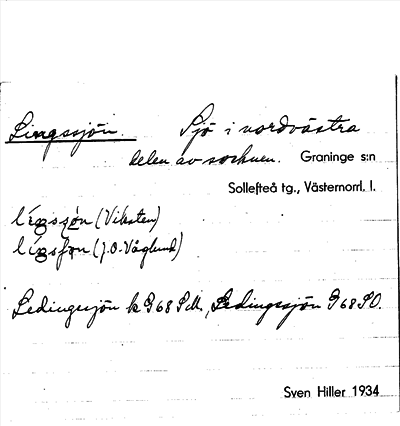 Lingssjön. Sjö i nordvästra
delen av socknen. Graninge s:n
Sollefteå tg., Västernorrl. l.
(Viksten)
(J.O. Våglund)
Ledingesjön k G 68 SM, Ledingssjön G 68 SO.
Sven Hiller 1934